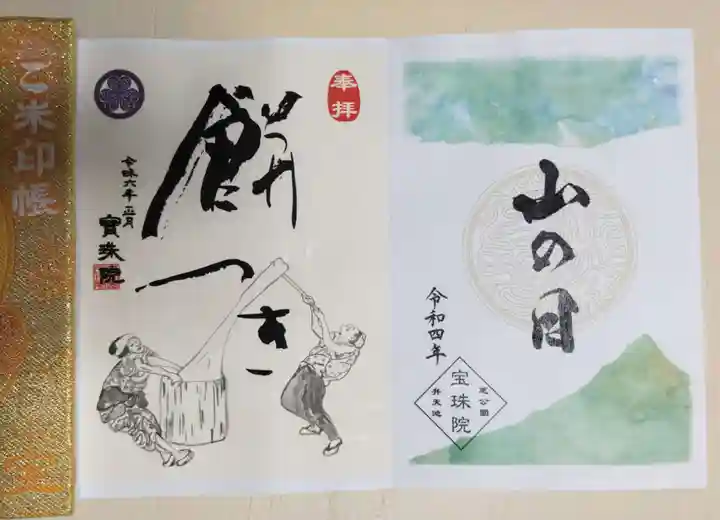 ご朱印帳
奉拝
餅つき
令和六年 正月
寳珠院
山の日
令和四年
芝公園
宝珠院
弁天池